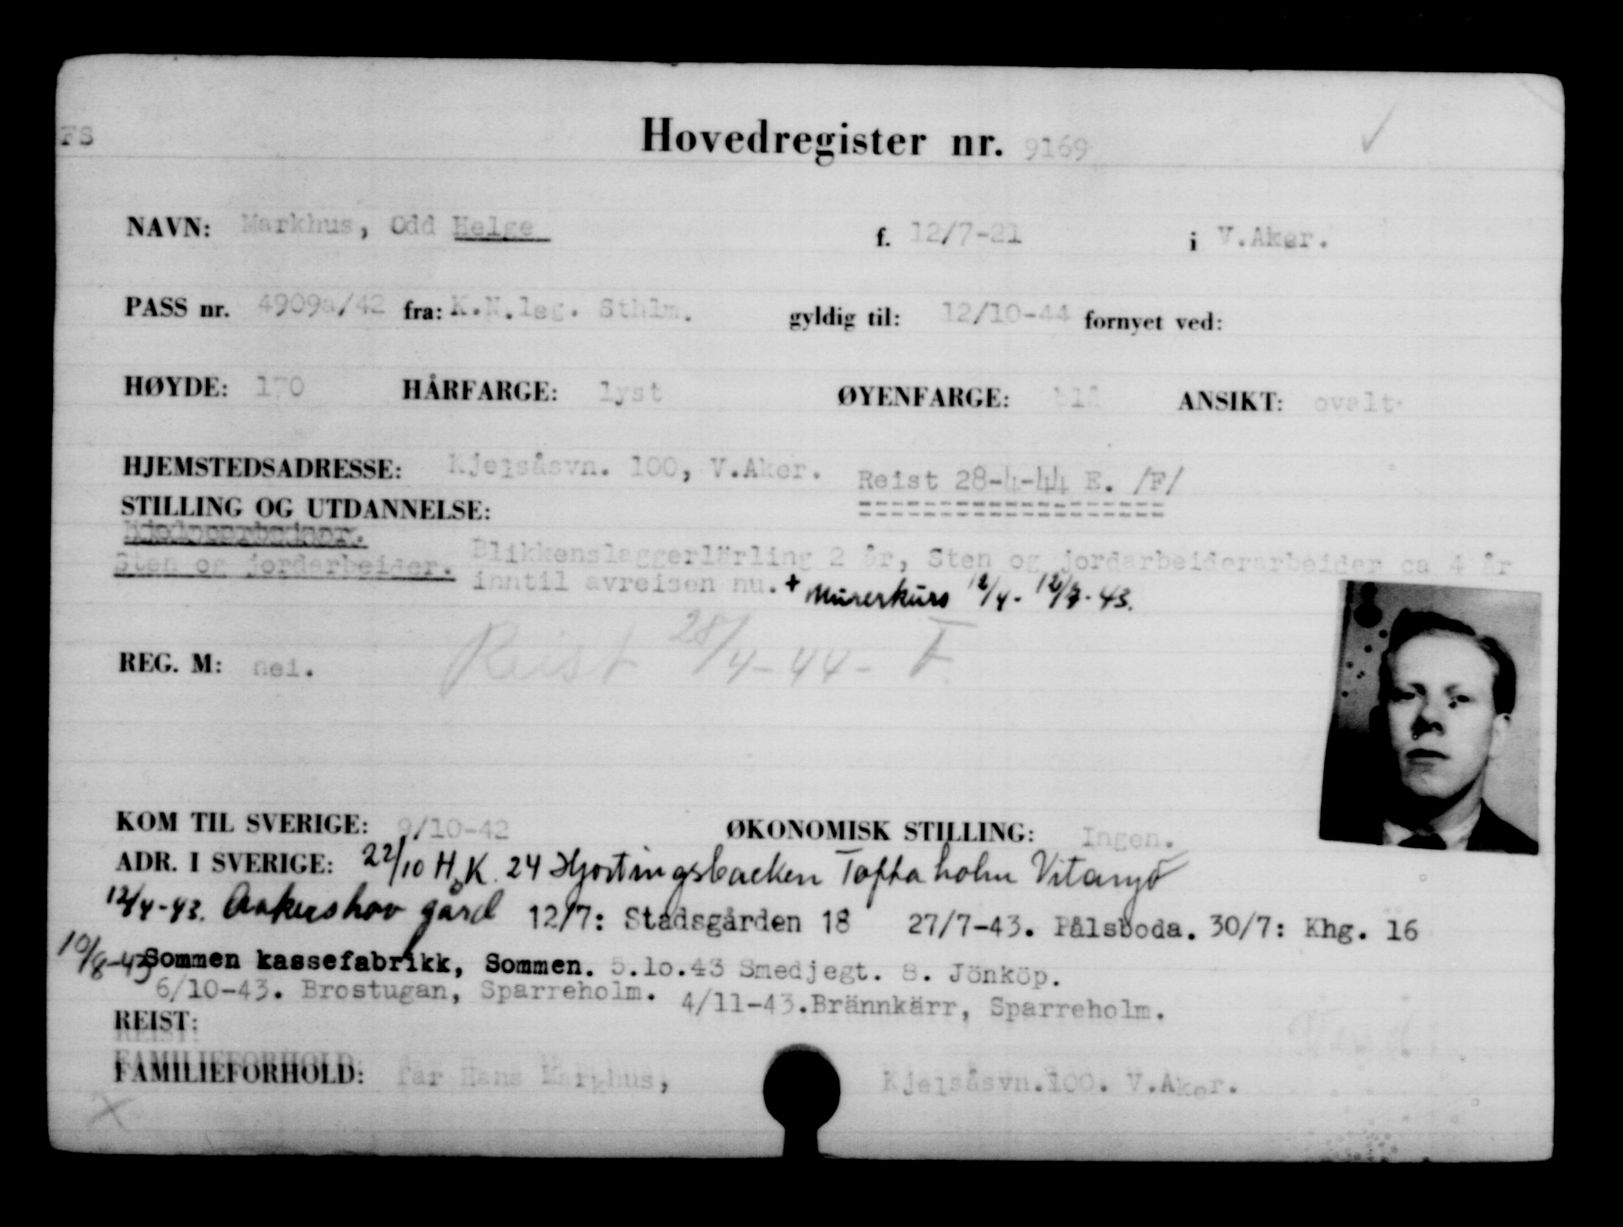 FS
Hovedregister nr. 9169
NAVN: Markhus, Odd Helge f. 12/7-21 i V.Aker.
PASS nr. 4909a/42 fra: K.N.leg. Sthlm. gyldig til: 12/10-44 fornyet ved:
HØYDE: 170 HÅRFARGE: lyst ØYENFARGE: blå ANSIKT: ovalt
HJEMSTEDSADRESSE: Kjelsåsvn. 100, V.Aker. Reist 28-4-44 E. /F/
STILLING OG UTDANNELSE:
Sten og jordarbeider. Blikkenslaggerlärling 2 år, Sten og jordarbeiderarbeider ca 4 år
inntil avreisen nu. + Murerkurs 12/4 - 12/7 - 43.
REG. M: nei. Reist 28/4-44- F
KOM TIL SVERIGE: 9/10-42 ØKONOMISK STILLING: Ingen.
ADR. I SVERIGE: 22/10 H.K. 24 Hjortingsbacken Toftaholm Vitaryd
12/4-43. Aakershov gård 12/7: Stadsgården 18 27/7-43. Pålsboda. 30/7: Khg. 16
10/8-43 Sommen kassefabrikk, Sommen. 5.10.43 Smedjegt. 8. Jönköp.
6/10-43. Brostugan, Sparreholm. 4/11-43. Brännkärr, Sparreholm.
REIST:
FAMILIEFORHOLD: far Hans Markhus, Kjelsåsvn.100. V.Aker.